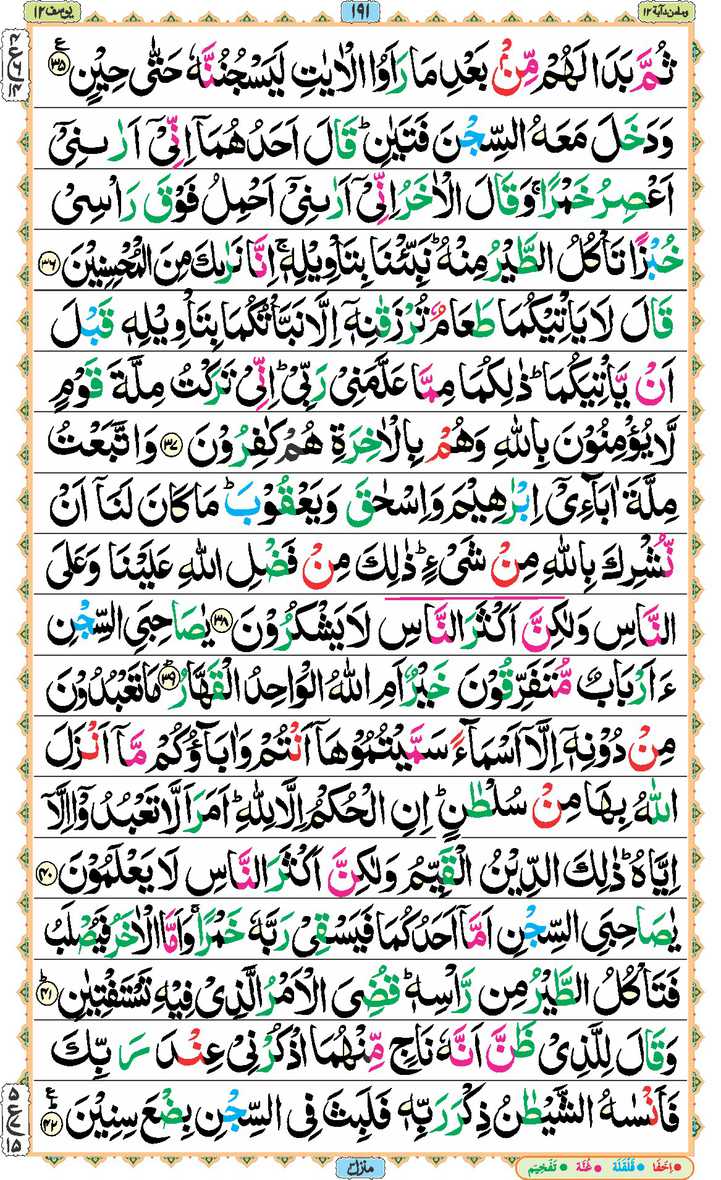 یوسف ۱۲
۱۹۱
ومامن دآبة ۱۲
ثُمَّ بَدَا لَهُمْ مِّنْۢ بَعْدِ مَا رَاَوُا الْاٰیٰتِ لَیَسْجُنُنَّهٗ حَتّٰی حِیْنٍ ﴿۳۵﴾
وَدَخَلَ مَعَهُ السِّجْنَ فَتَیٰنِ ؕ قَالَ اَحَدُهُمَاۤ اِنِّیْۤ اَرٰىنِیْۤ
اَعْصِرُ خَمْرًا ۚ وَقَالَ الْاٰخَرُ اِنِّیْۤ اَرٰىنِیْۤ اَحْمِلُ فَوْقَ رَاْسِیْ
خُبْزًا تَاْكُلُ الطَّیْرُ مِنْهُ ؕ نَبِّئْنَا بِتَاْوِیْلِهٖ ۚ اِنَّا نَرٰىكَ مِنَ الْمُحْسِنِیْنَ ﴿۳۶﴾
قَالَ لَا یَاْتِیْكُمَا طَعَامٌ تُرْزَقٰنِهٖۤ اِلَّا نَبَّاْتُكُمَا بِتَاْوِیْلِهٖ قَبْلَ
اَنْ یَّاْتِیَكُمَا ؕ ذٰلِكُمَا مِمَّا عَلَّمَنِیْ رَبِّیْ ؕ اِنِّیْ تَرَكْتُ مِلَّةَ قَوْمٍ
لَّا یُؤْمِنُوْنَ بِاللّٰهِ وَهُمْ بِالْاٰخِرَةِ هُمْ كٰفِرُوْنَ ﴿۳۷﴾ وَاتَّبَعْتُ
مِلَّةَ اٰبَآءِیْۤ اِبْرٰهِیْمَ وَاِسْحٰقَ وَیَعْقُوْبَ ؕ مَا كَانَ لَنَاۤ اَنْ
نُّشْرِكَ بِاللّٰهِ مِنْ شَیْءٍ ؕ ذٰلِكَ مِنْ فَضْلِ اللّٰهِ عَلَیْنَا وَعَلَی
النَّاسِ وَلٰكِنَّ اَكْثَرَ النَّاسِ لَا یَشْكُرُوْنَ ﴿۳۸﴾ یٰصَاحِبَیِ السِّجْنِ
ءَاَرْبَابٌ مُّتَفَرِّقُوْنَ خَیْرٌ اَمِ اللّٰهُ الْوَاحِدُ الْقَهَّارُ ﴿۳۹﴾ ؕ مَا تَعْبُدُوْنَ
مِنْ دُوْنِهٖۤ اِلَّاۤ اَسْمَآءً سَمَّیْتُمُوْهَاۤ اَنْتُمْ وَاٰبَآؤُكُمْ مَّاۤ اَنْزَلَ
اللّٰهُ بِهَا مِنْ سُلْطٰنٍ ؕ اِنِ الْحُكْمُ اِلَّا لِلّٰهِ ؕ اَمَرَ اَلَّا تَعْبُدُوْۤا اِلَّاۤ
اِیَّاهُ ؕ ذٰلِكَ الدِّیْنُ الْقَیِّمُ وَلٰكِنَّ اَكْثَرَ النَّاسِ لَا یَعْلَمُوْنَ ﴿۴۰﴾
یٰصَاحِبَیِ السِّجْنِ اَمَّاۤ اَحَدُكُمَا فَیَسْقِیْ رَبَّهٗ خَمْرًا ۚ وَاَمَّا الْاٰخَرُ فَیُصْلَبُ
فَتَاْكُلُ الطَّیْرُ مِنْ رَّاْسِهٖ ؕ قُضِیَ الْاَمْرُ الَّذِیْ فِیْهِ تَسْتَفْتِیٰنِ ﴿۴۱﴾ ؕ
وَقَالَ لِلَّذِیْ ظَنَّ اَنَّهٗ نَاجٍ مِّنْهُمَا اذْكُرْنِیْ عِنْدَ رَبِّكَ
فَاَنْسٰىهُ الشَّیْطٰنُ ذِكْرَ رَبِّهٖ فَلَبِثَ فِی السِّجْنِ بِضْعَ سِنِیْنَ ﴿۴۲﴾ ؕ
منزل
اِخفَا قَلقَلَة غُنَّة تَفخِیم